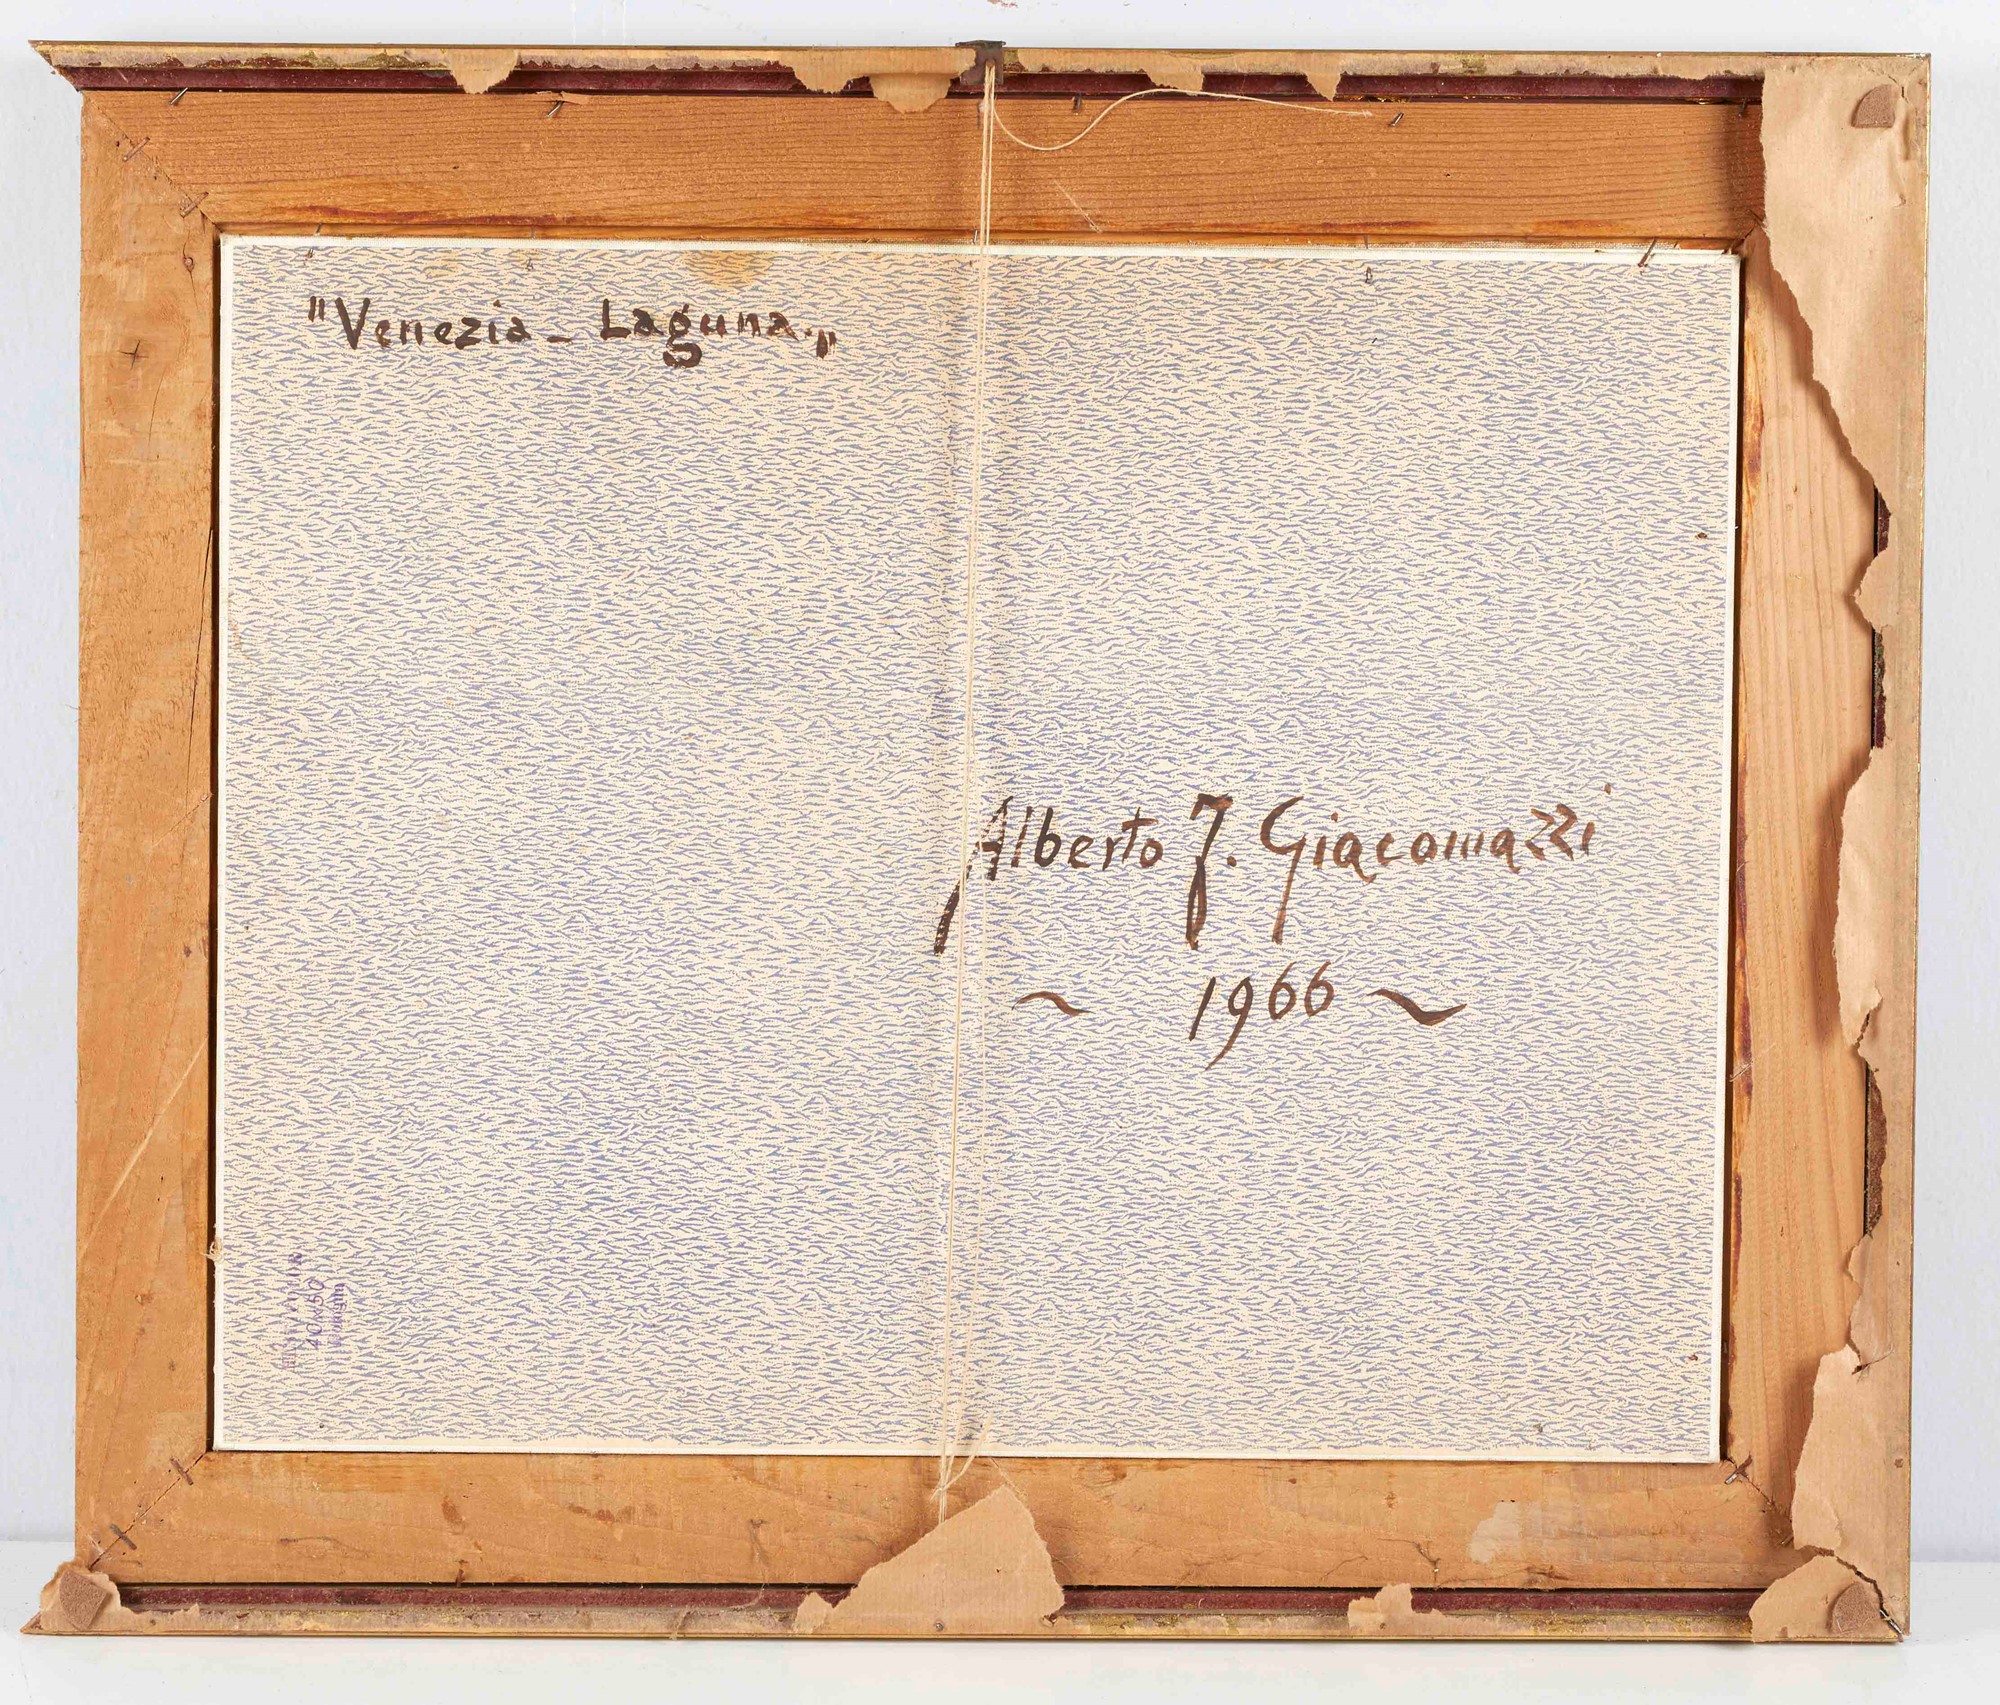 "Venezia - Laguna."
Alberto J. Giacomazzi
~ 1966 ~
40x50